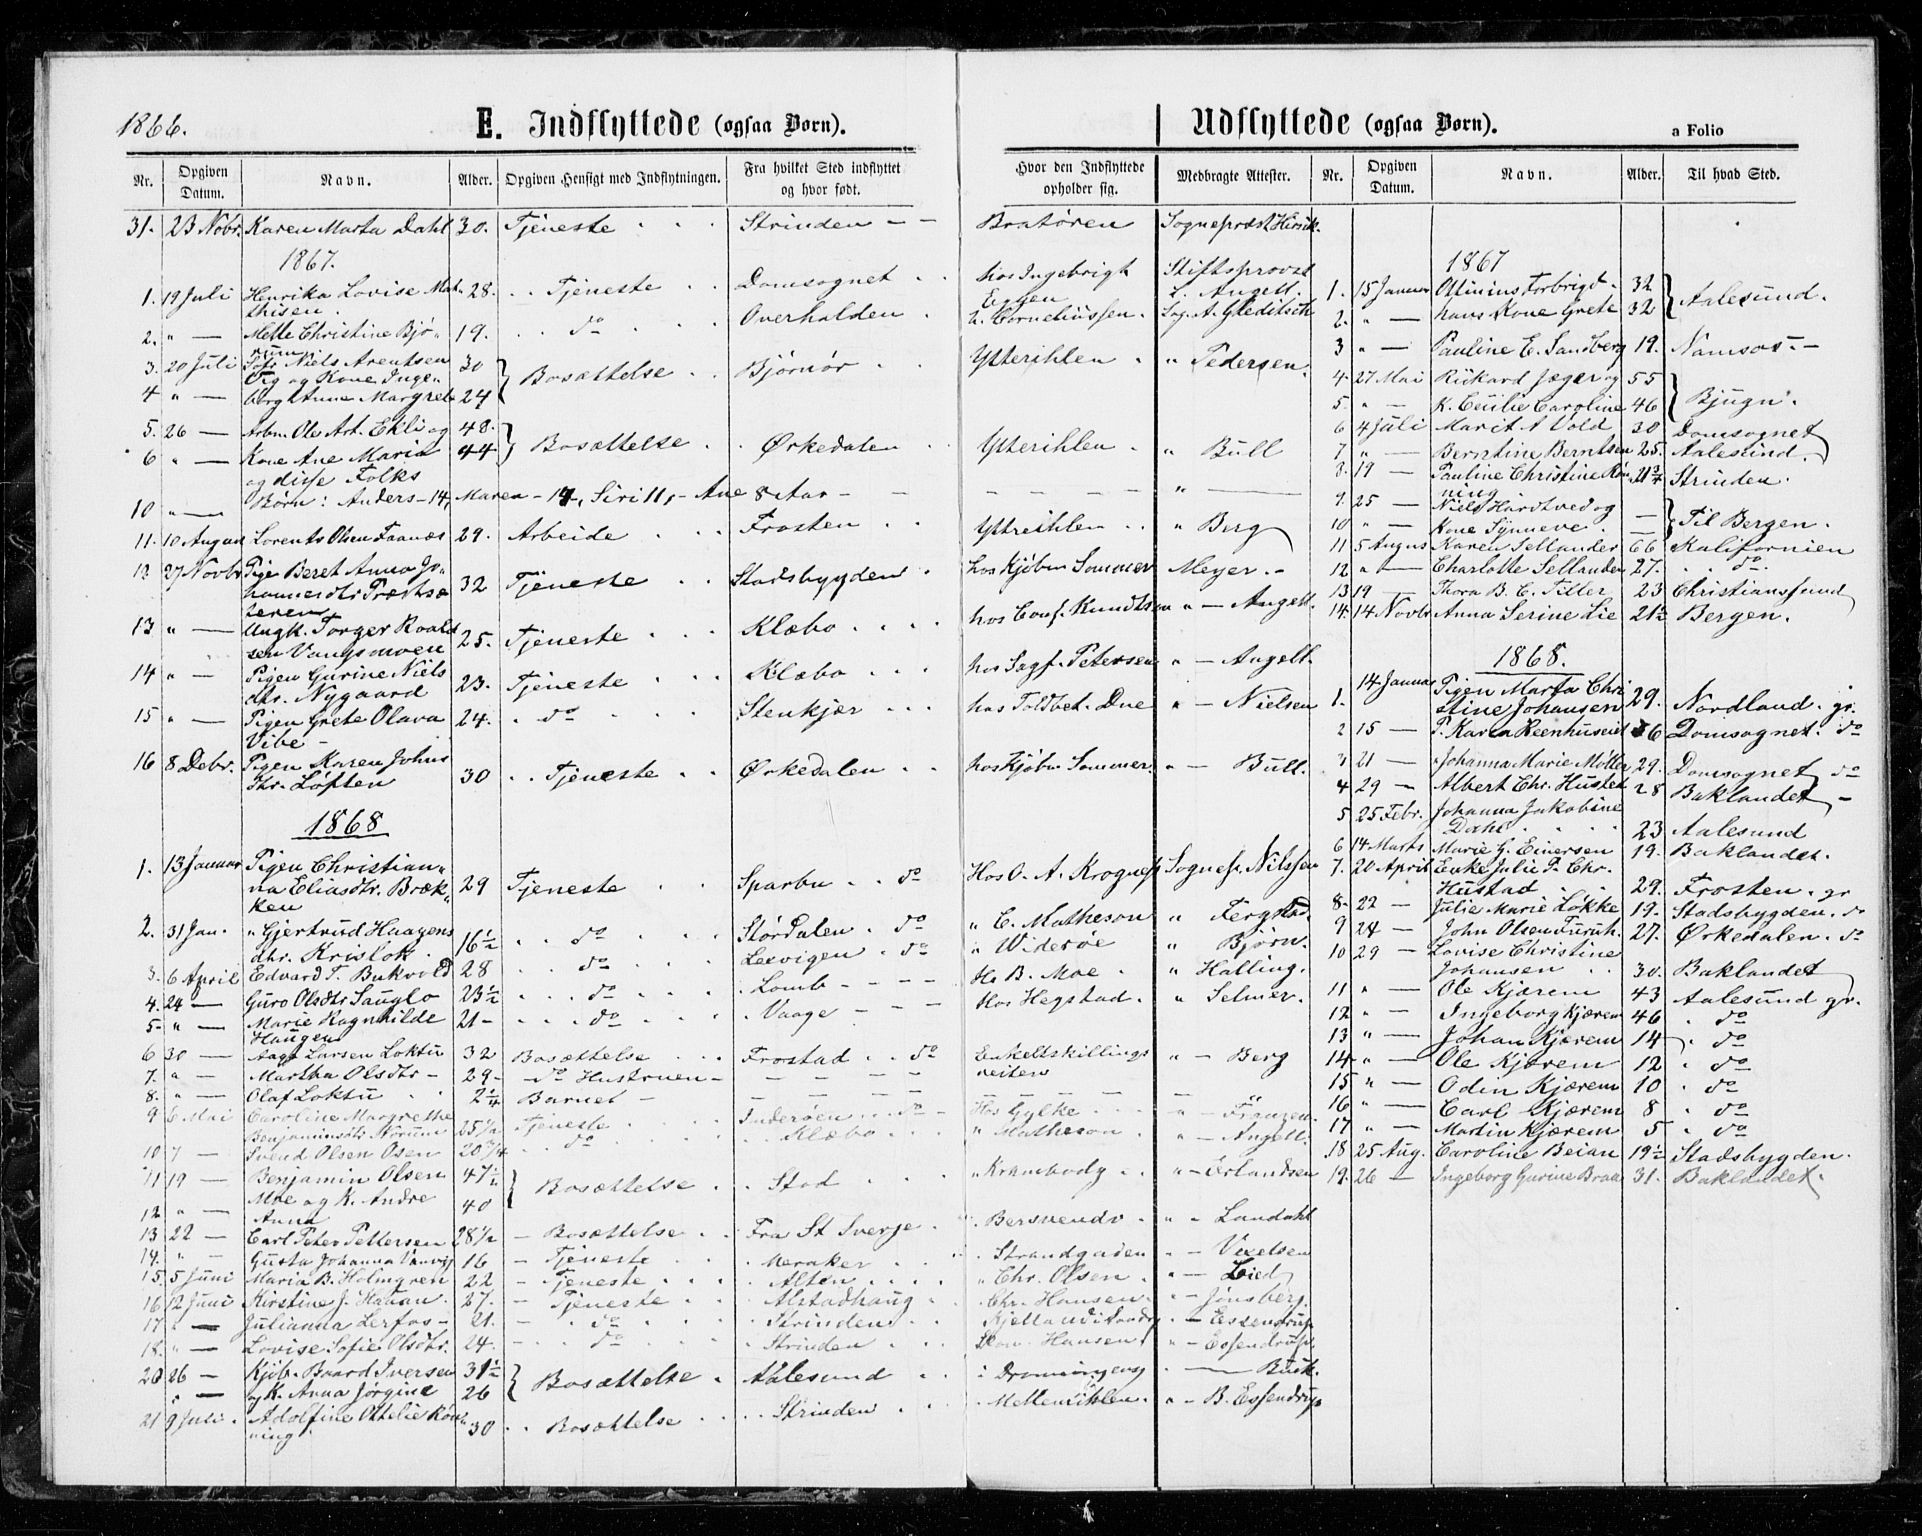 1866.
E. Indflyttede (ogsaa Børn).
Nr. Opgiven Datum. Navn. Alder. Opgiven Hensigt med Indflytningen. Fra hvilket Sted indflyttet og hvor født. Hvor den Indflyttede opholder sig. Medbragte Attester.
31. 23 Nobr. Karen Marta Dahl 30. Tjeneste Strinden Bratøren Sognepræst
1867.
1. 19 Juli Henrika Lovise Mat- 28. Tjeneste Domsognet hos Ingebrigt Stiftsprovst
thisen. Eggen L. Angell.
2. " — Mette Christine Bjø- 19. do Overhalden h. Corneliussen. Sog. A. Gleditsch
rum
3. 20 Juli Niels Arentsen 30 Bosættelse Bjørnør Ytterihlen " Pedersen.
Vig og Kone Inge-
4 " — borg Anne Margrete 24
5. 26 — Arbm. Ole Art. Ekli og 48. Bosættelse Ørkedalen Ytterihlen " Bull
6 " — Kone Ane Maria 44
og disse Folks
10 " — Børn: Anders - 14, Maren - 14, Siri 11, - Ane 8 Aar - "
11. 10 August Lorents Olsen Faanæs 29. Arbeide Frosten Ytreihlen " Berg
12 27 Novbr Pige Beret Anna Jo- 32 Tjeneste Stadsbygden hos Kjøbm Sommer Meyer.
hannesdtr Præstsæ-
teren
13 " — Ungk. Torger Roald 25. Tjeneste Klæbo hos Conf. Knudtson " — Angell.
sen Vangsmoen
14 " — Pigen Gurine Niels 23. Tjeneste Klæbo hos Sagf. Petersen " — Angell.
dtr. Nygaard
15 " — Pigen Grete Olava 24. do Stenkjær hos Toldbet. Due " — Nielsen
Vibe —
16 8 Debr. Pigen Karen Johns 30 Tjeneste Ørkedalen hos Kjøbm Sommer. " — Bull.
dtr. Løften
1868
1. 13 Januar Pigen Christian-
na Eliasdtr. Bræk- 29 Tjeneste Sparbu do Hos O. A. Krogness Sognepr. Nilssen
ken
2. 31 Jan. " Gjertrud Haagens 16½ do Størdalen. do " C. Matheson " Fergstad.
dhr. Krislok. Lexvigen. do " Widerøe " Bjørn.
3. 6 April Edvard T. Bukvold 28 do
4. 24 — Guro Olsdtr Sauglo 23½ do Lomb Hs B. Moe " Halling.
5. " — Marie Ragnhilde 21 do Vaage Hos Hegstad. " Selmer.
Haugen
6 30 — Aage Larsen Loktu 32 Bosættelse Frostad do Enkeltskillings " — Berg
7. " — Martha Olsdtr 29 do Hustruen veiten
8. " — Olaf Loktu 2¼ Barnet
9 6 Mai Caroline Margrethe
Benjaminsdtr Norum 25½ Tjeneste Inderøen do Hos Gylke
10 7 — Svend Olsen Osen 20¾ do Klæbo " Matheson " — Angell.
11 19 — Benjamin Olsen 47½ Bosættelse Stod " Krambodg " — Erlandsen
Moe og K. Andre
12 " — Anna 40
13 22 — Carl Peter Pettersen 28½ Bosættelse Fra St Sverje. Bersvendv. " — Landahl
14. " — Gusta Johanna 16 Tjeneste Meraker Strandgaden " — Vexelsen
15. 5 Juni Maria B. Holmgren 22 Tjeneste Alten " Chr. Olsen " — Lied
16 12 Juni Kirstine J. Hanan. 27. Tjeneste Alstadhaug Chr. Hansen. " — Jønsberg.
17 " — Julianna Lerfos 21. do Strinden " — Essendrup.
18. " — Lovise Sofie Olsdtr. 24. do Strinden Hansen. " — Essendrup.
20 26 — Kjøb. Baard Iversen 31½ Bosættelse Aalesund i Dronningensg. — Buck.
" — og K. Anna Jørgine 26
21 9 Juli. Adolfine Ottelie Røn- 30 Bosættelse Strinden Mellemihlen. " — B. Essendrup
ning.
Udflyttede (ogsaa Børn).
a Folio
Nr. Opgiven Datum. Navn. Alder. Til hvad Sted.
1867
1. 15 Januar Olinius Forbrigd. 32 Aalesund.
2. " — hans Kone Grete 32
3 " — Pauline E. Sandberg 19. Namsos.
4. 27 Mai Rikard Jæger og 55 Bjugn.
5. " — K. Cecilie Caroline 46
6 4 Juli Marit A Vold 30 Domsognet
7 " — Berntine Berntsen 25. Aalesund.
8. 19 — Pauline Christine Røn- 21¾ Strinden.
ning
9. 25 — Niels Hardtved og — Til Bergen.
10 " — Kone Synneve. —
11 5 Augus Karen Sellander 66 Kalifornien
12 " — Charlotte Sellander 27. do.
13 19 — Thora B. C. Tiller 23 Christianssund
14. 14 Novbr Anna Serine Lie 21½ Bergen.
1868.
1. 14 Januar Pigen Marta Chri 29. Nordland. gr.
stine Johansen
2 15 — P. Karen Reenhuseid 36 Domsognet. do
3 21 — Johanna Marie Møller 29. Domsognet do
4 29 — Albert Chr. Hustad 28 Baklandet —
5 25 Febr. Johanna Jakobine
Dahl 23 Aalesund
6 14 Marts Marie G. Einersen 19. Baklandet.
7. 20 April Enke Julie P. Chr.
Hustad 29. Frosten. gr
8. 22 — Julie Marie Løkke 19. Stadsbygden. do
9 24 — John Olsen Furuh. 27. Ørkedalen. do
10 29 — Lovise Christine
Johansen 30. Baklandet
11 " — Ole Kjærem 43 Aalesund gr.
12 " — Ingeborg Kjærem 46 " do
13 " — Johan Kjærem 14 " do
14 " — Ole Kjærem 12 " do
15 " — Odin Kjærem 10 " do
16 " — Carl Kjærem 8 " do
17 " — Martin Kjærem 5 " do
18 25 Aug. Caroline Beian 19½ Stadsbygden.
19. 26 — Ingeborg Gurine Braa 31. Baklandet.